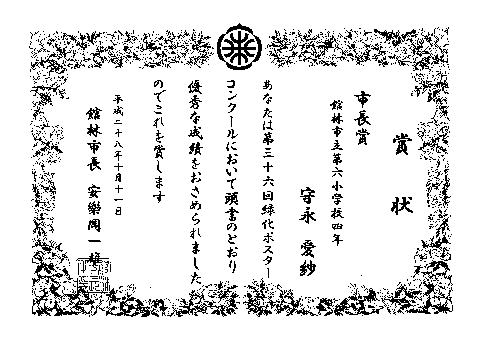 賞状
市長賞
館林市立第六小学校四年
守永愛紗
あなたは第三十六回緑化ポスター
コンクールにおいて頭書のとおり
優秀な成績をおさめられました
のでこれを賞します
平成二十八年十月十一日
館林市長 安樂岡一雄